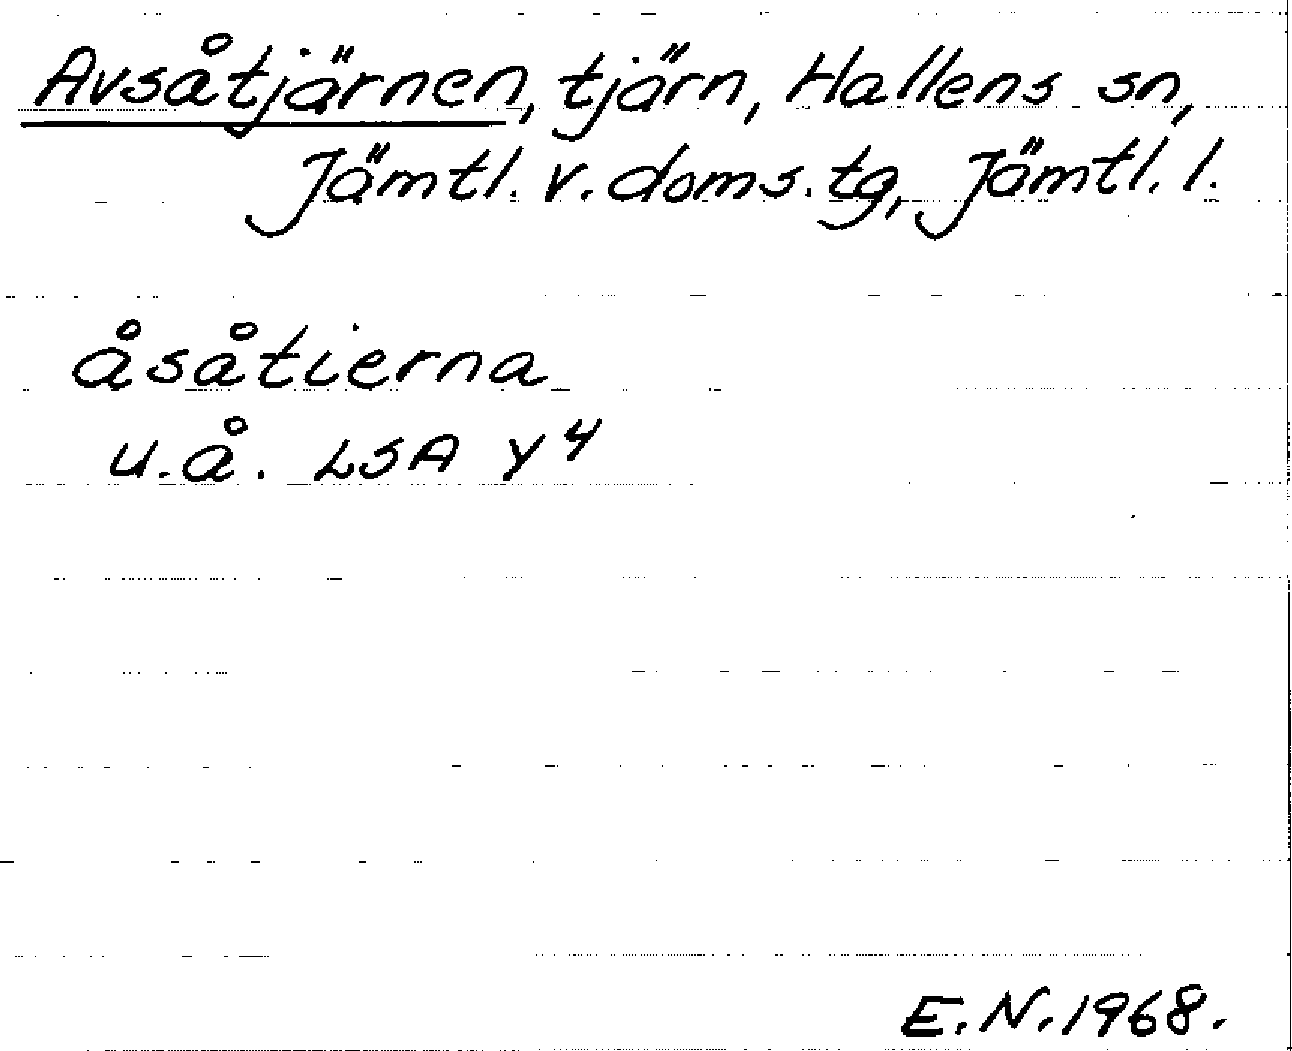 Avsåtjärnen, tjärn, Hallens sn,
Jämtl. v. doms. tg, Jämtl. l.
åsåtierna
u.å. LSA Y 4
E.N. 1968.